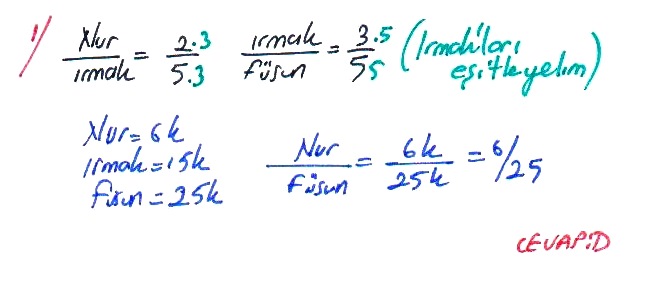 1) Nur/ırmak = 2.3/5.3 ırmak/füsun = 3.5/5.5 (Irmakları eşitleyelim)
Nur = 6k
ırmak = 15k
füsun = 25k
Nur/Füsun = 6k/25k = 6/25
CEVAP:D